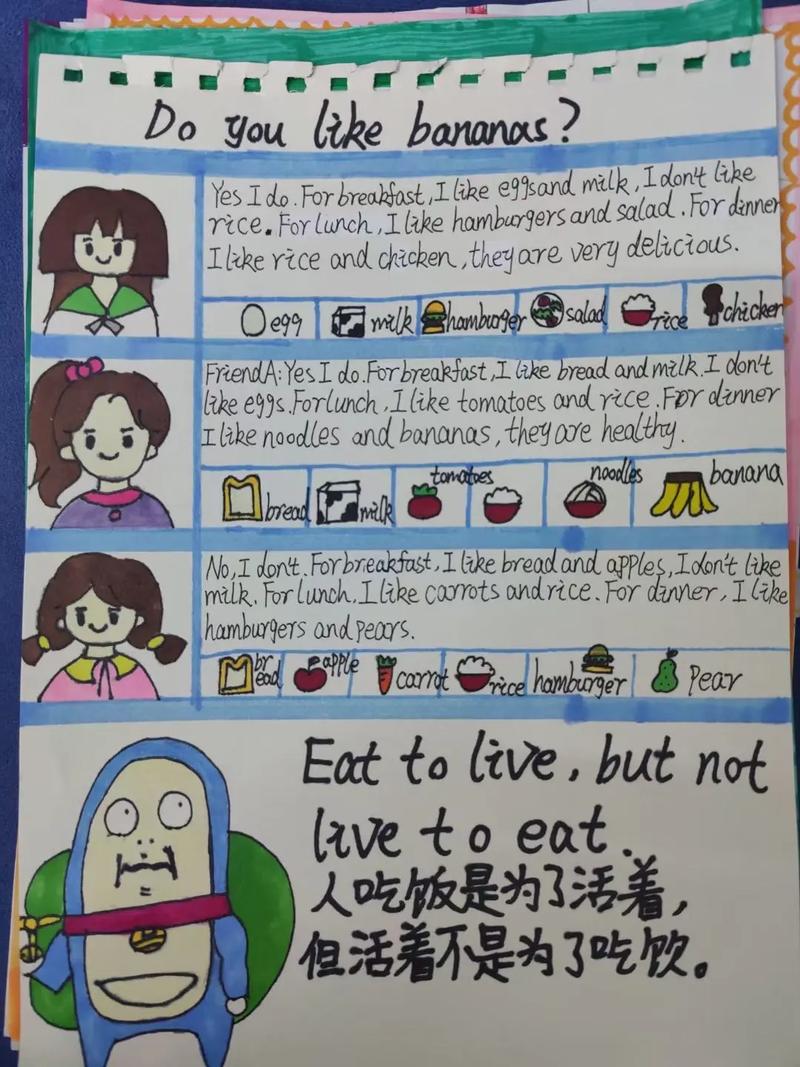 Do you like bananas?
Yes I do. For breakfast, I like eggs and milk, I don't like
rice. For lunch, I like hamburgers and salad. For dinner
I like rice and chicken, they are very delicious.
egg milk hamburger salad rice chicken
FriendA: Yes I do. For breakfast, I like bread and milk. I don't
like eggs. For lunch, I like tomatoes and rice. For dinner
I like noodles and bananas, they are healthy.
tomatoes noodles banana
bread milk
No, I don't. For breakfast, I like bread and apples, I don't like
milk. For lunch, I like carrots and rice. For dinner, I like
hamburgers and pears.
bread apple carrot rice hamburger pear
Eat to live, but not
live to eat.
人吃饭是为了活着，
但活着不是为了吃饮。